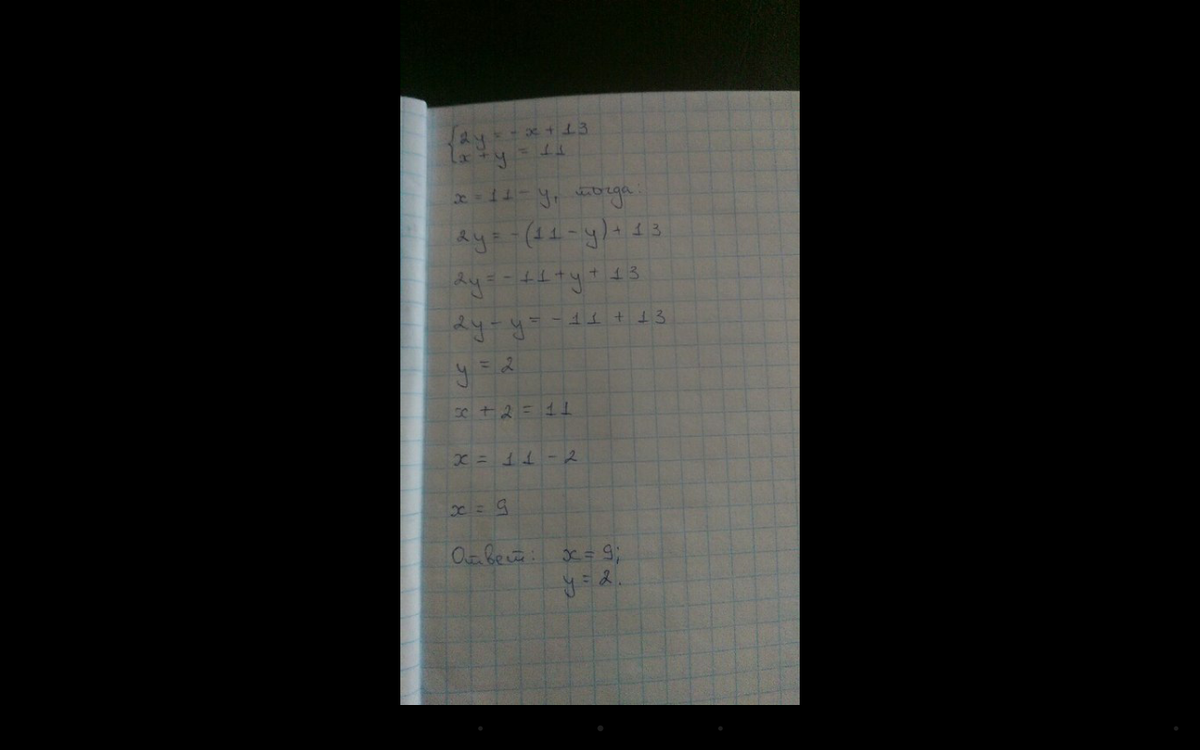 2y = -x + 13
x + y = 11
x = 11 - y, тогда:
2y = -(11 - y) + 13
2y = -11 + y + 13
2y - y = -11 + 13
y = 2
x + 2 = 11
x = 11 - 2
x = 9
Ответ: x = 9;
y = 2.